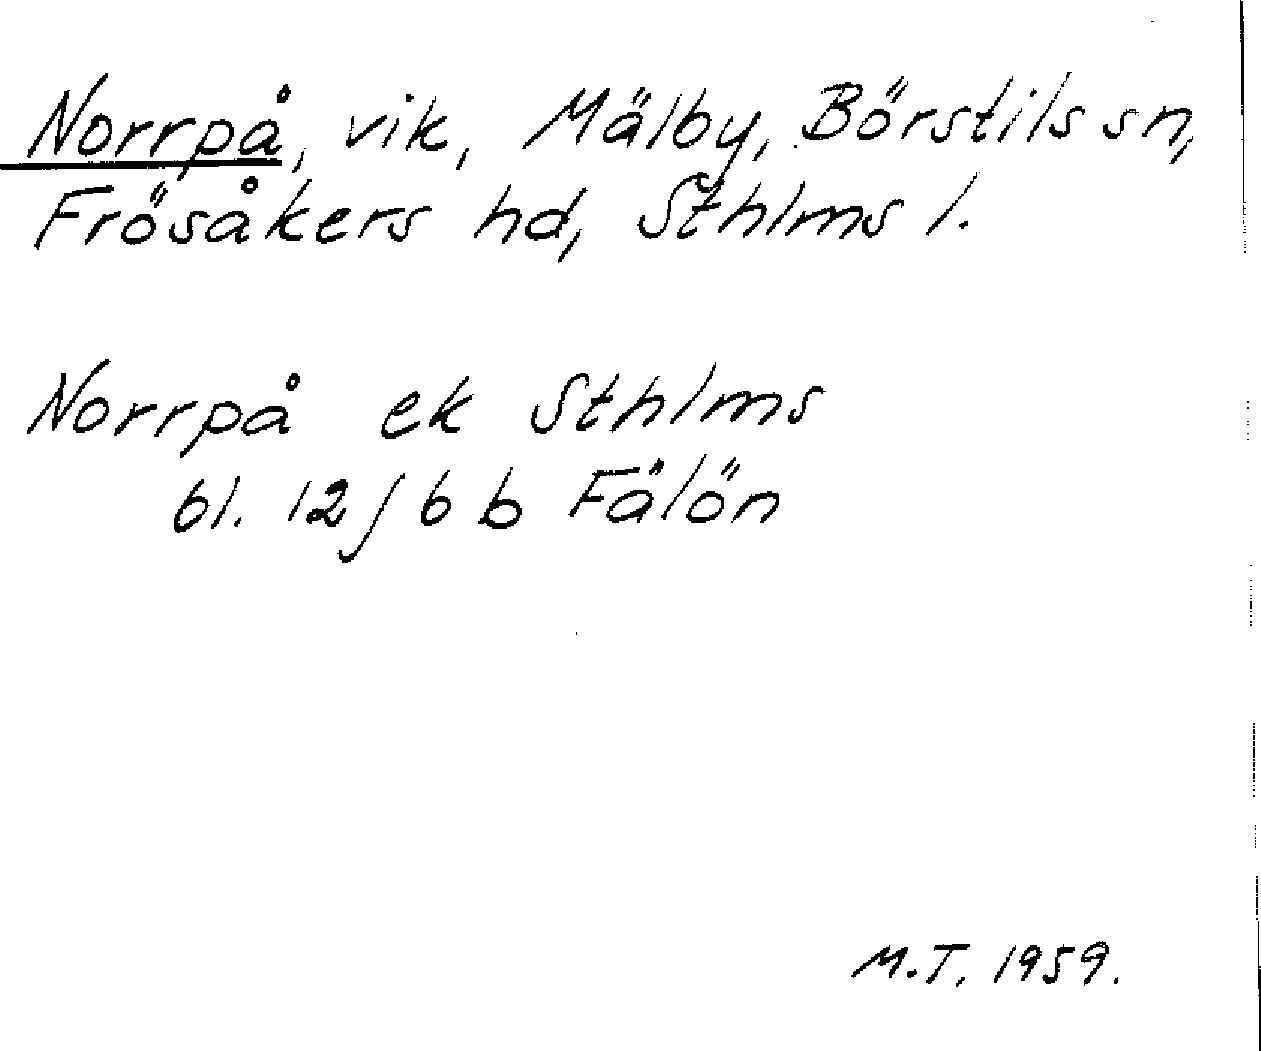 Norrpå, vik, Mälby, Börstils sn,
Frösåkers hd, Sthlms l.
Norrpå ek Sthlms
bl. 12 J 6 b Fälön
M.T. 1959.